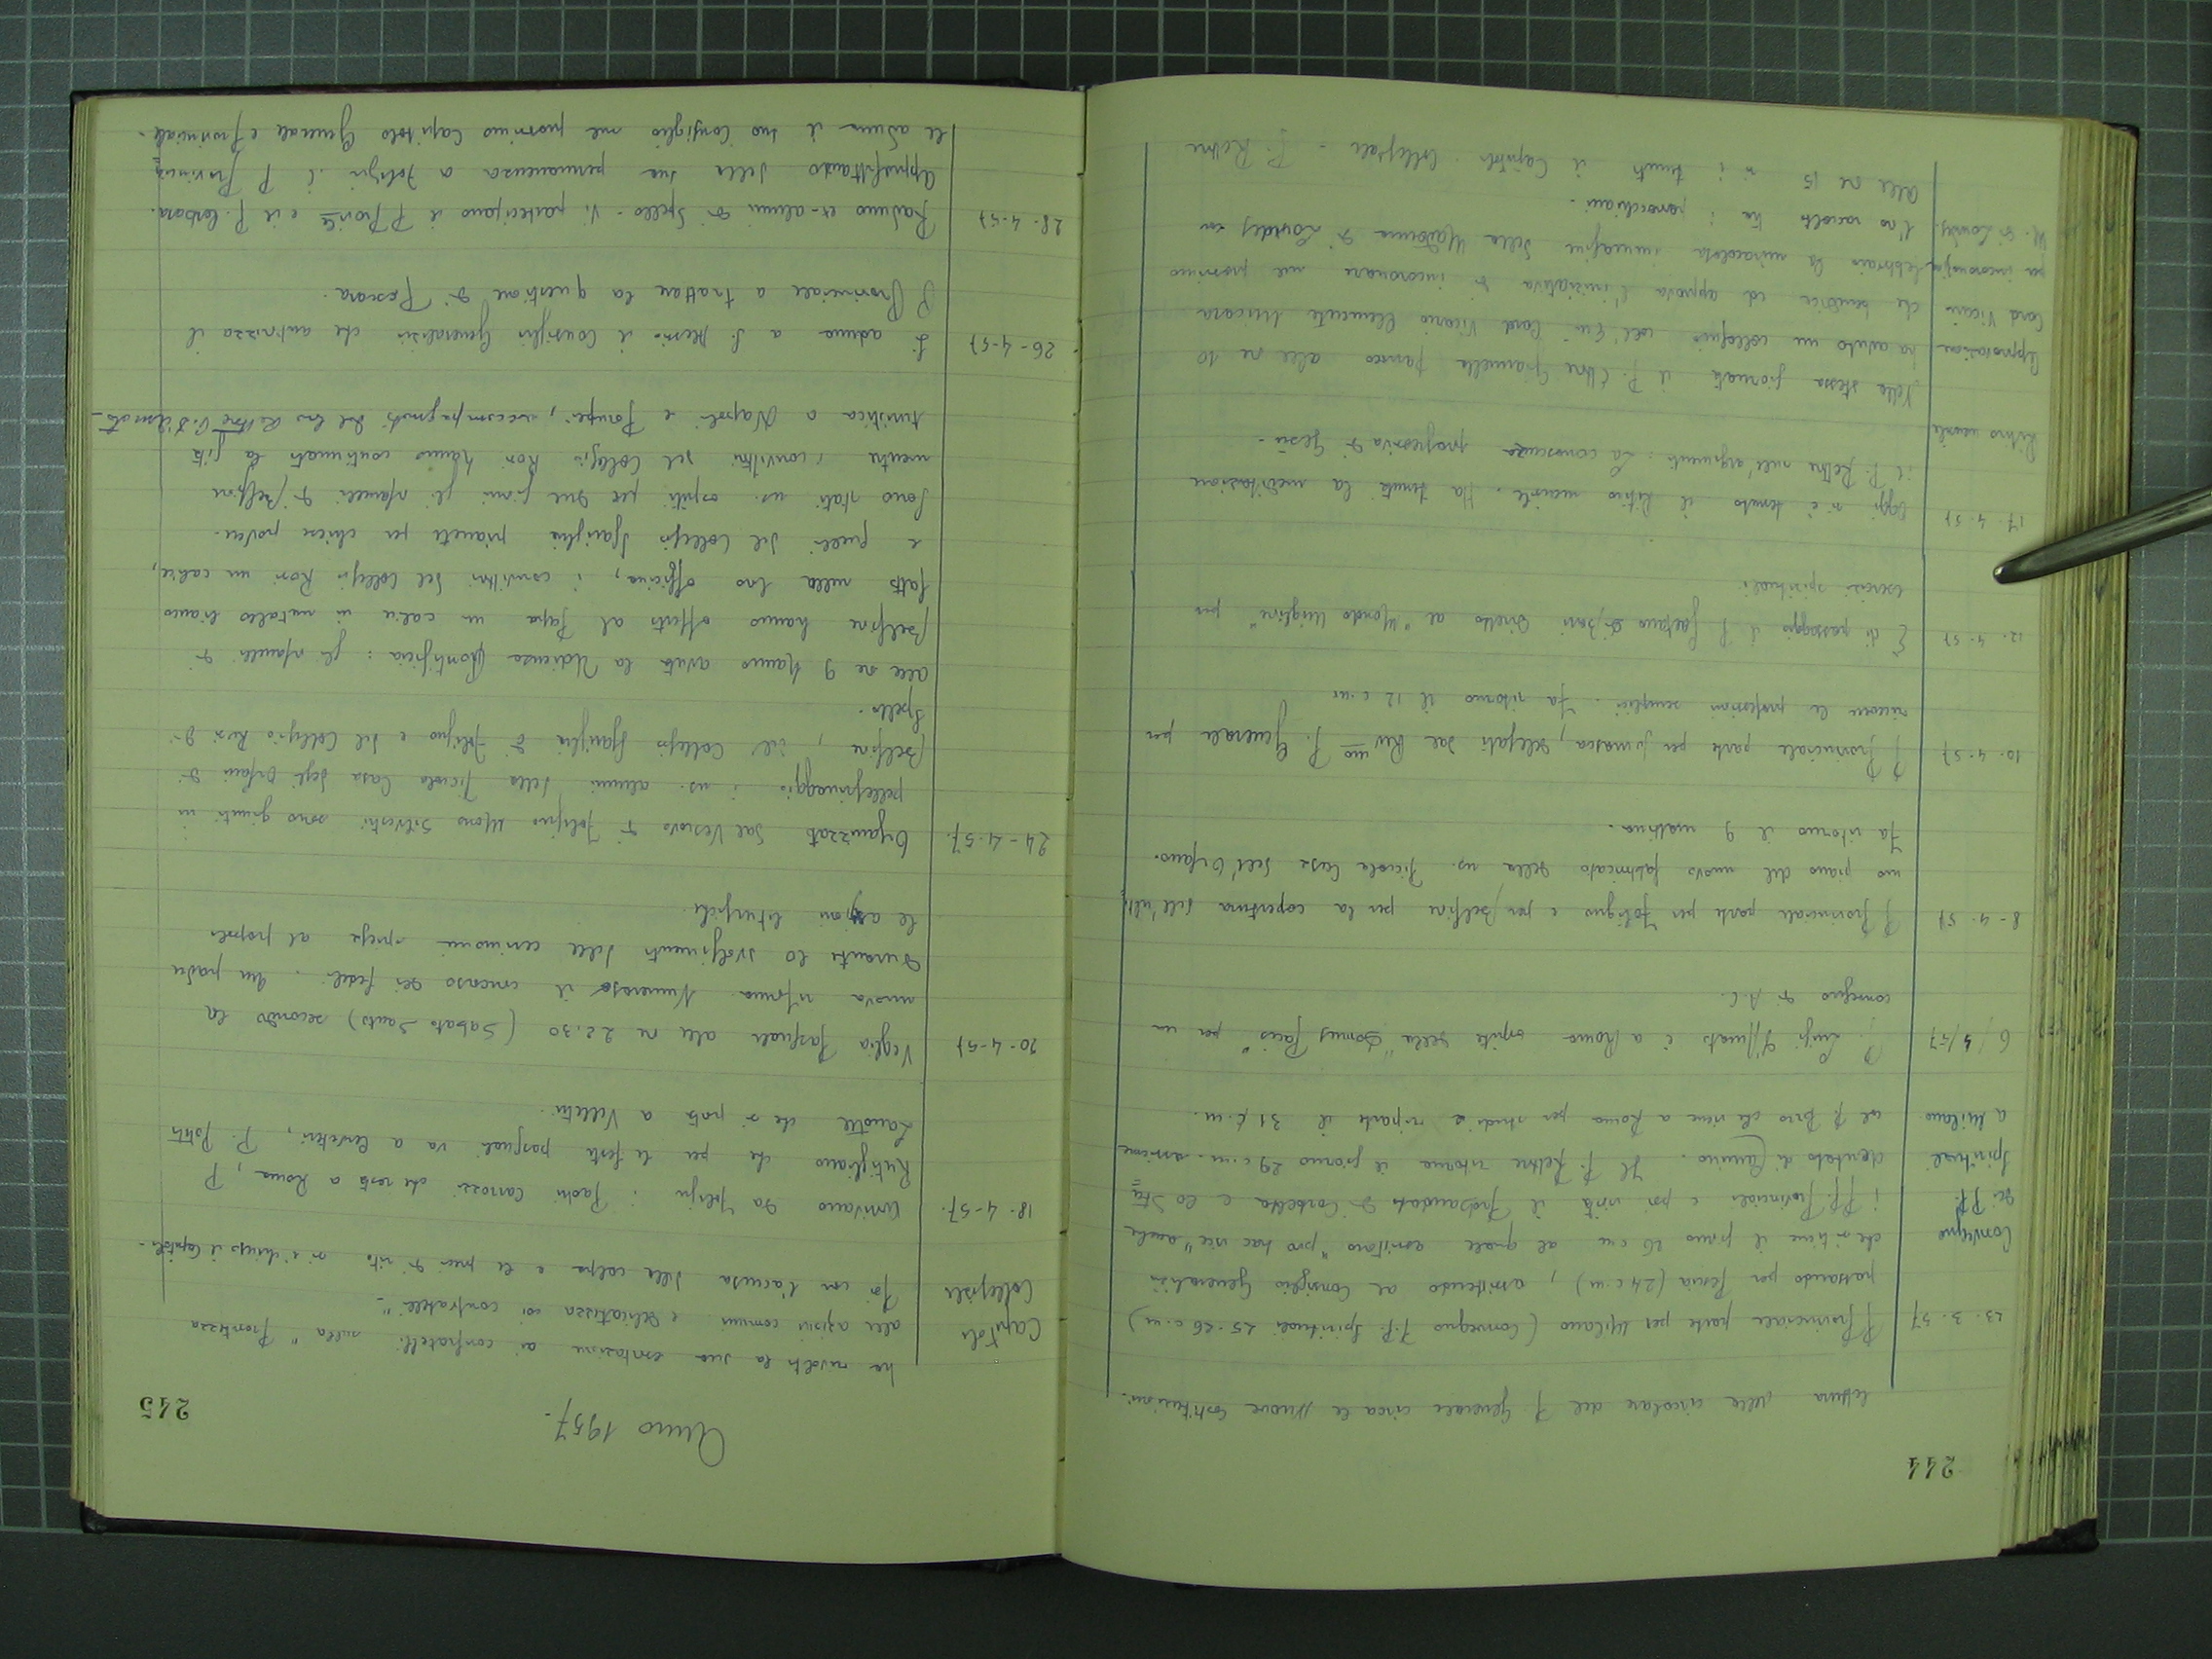 244
lettura della circolare del P. Generale circa le nuove Costituzioni.
23. 3. 57 P. Provinciale parte per Milano (Convegno P.P. Spirituali 25-26 c.m)
passando per Pescia (24 c.m), assistendo al Consiglio Generalizio
Convegno che si tiene il giorno 26 c.m. al quale assistono "pro hac vice" anche
dei PP. i PP. Provinciali e poi visita il Probandato di Corbetta e lo Stu
Spirituali dentato di Camino. Il P. Rettore ritorna il giorno 29 c.m. assieme
a Milano al P. che viene a Roma per studi e riparte il 31 c.m.
6/4/57 P. Luigi D'Amato è a Roma ospite della "Domus Pacis" per un
convegno di A.C.
8-4.57 P. Provinciale parte per Foligno e per Belfiore per la copertura dell'ulti
mo piano del nuovo fabbricato della ns. Piccola Casa dell'Orfano.
Fa ritorno il 9 mattina.
10-4.57 P. Provinciale parte per Somasca, delegato dal Rev.mo P. Generale per
ricevere le professioni semplici. Fa ritorno il 12 c.m.
12.4.57 È di passaggio il P. Gaetano Di Bari diretto al "Mondo Migliore" per
esercizi spirituali.
17.4.57 Oggi si è tenuto il ritiro mensile. Ha tenuto la meditazione
il P. Rettore sull'argomento: La conoscenza progressiva di Gesù.
Ritiro mensile
Nella stessa giornata il P. Ettore Giannella parroco alle ore 10
Approvazione ha avuto un colloquio coll'Em. Card. Vicario Clemente Micara
Card. Vicario che benedice ed approva l'iniziativa di incoronare nel prossimo
per incoronazione febbraio la miracolosa immagine della Madonna di Lourdes con
M. di Lourdes. l'oro raccolto tra i parrocchiani.
Alle ore 15 si è tenuto il Capitolo Collegiale - P. Rettore
Anno 1957.
245
ha rivolto la sua esortazione ai confratelli sulla "Prontezza
Capitolo alle azioni comuni e delicatezza coi confratelli".
Collegiale Poi con l'accusa delle colpe e le preci di rito si è chiuso il Capitolo.
18-4-57. Arrivano da Foligno i Padri Carrozzi che resta a Roma, P.
Rutigliano che per le feste pasquali va a Cerveteri, P.
che si porta a Velletri.
20-4-57 Veglia Pasquale alle ore 22.30 (Sabato Santo) secondo la
nuova riforma. Numeroso il concorso dei fedeli. Un padre
durante lo svolgimento delle cerimonie spiega al popolo
le azioni liturgiche.
24-4-57. Organizzato dal Vescovo di Foligno Mons. Silvestri sono giunti in
pellegrinaggio i ns. alunni della Piccola Casa degli Orfani di
Belfiore, del Collegio Sgariglia di Foligno e del Collegio Rosi di
Spello.
Alle ore 9 hanno avuto la Udienza Pontificia: gli orfanelli di
Belfiore hanno offerto al Papa un calice in metallo bianco
fatto nella loro officina, i convittori del Collegio Rosi un calice,
e quelli del Collegio Sgariglia pianete per chiese povere.
Sono stati ns. ospiti per due giorni gli orfanelli di Belfiore
mentre i convittori del Collegio Rosi hanno continuato la gita
turistica a Napoli e Pompei, accompagnati dal loro Rettore P. D'Amato.
26-4-57 Si aduna a S. Alessio il Consiglio Generalizio che autorizza il
P. Provinciale a trattare la questione di Pescara.
28-4-57 Raduno ex-alunni di Spello. Vi partecipano il P. Prov.le e il P. Cerbara.
Approfittando della sua permanenza a Foligno il P. Provincia
le aduna il suo Consiglio nel prossimo Capitolo Generale e Provinciale.